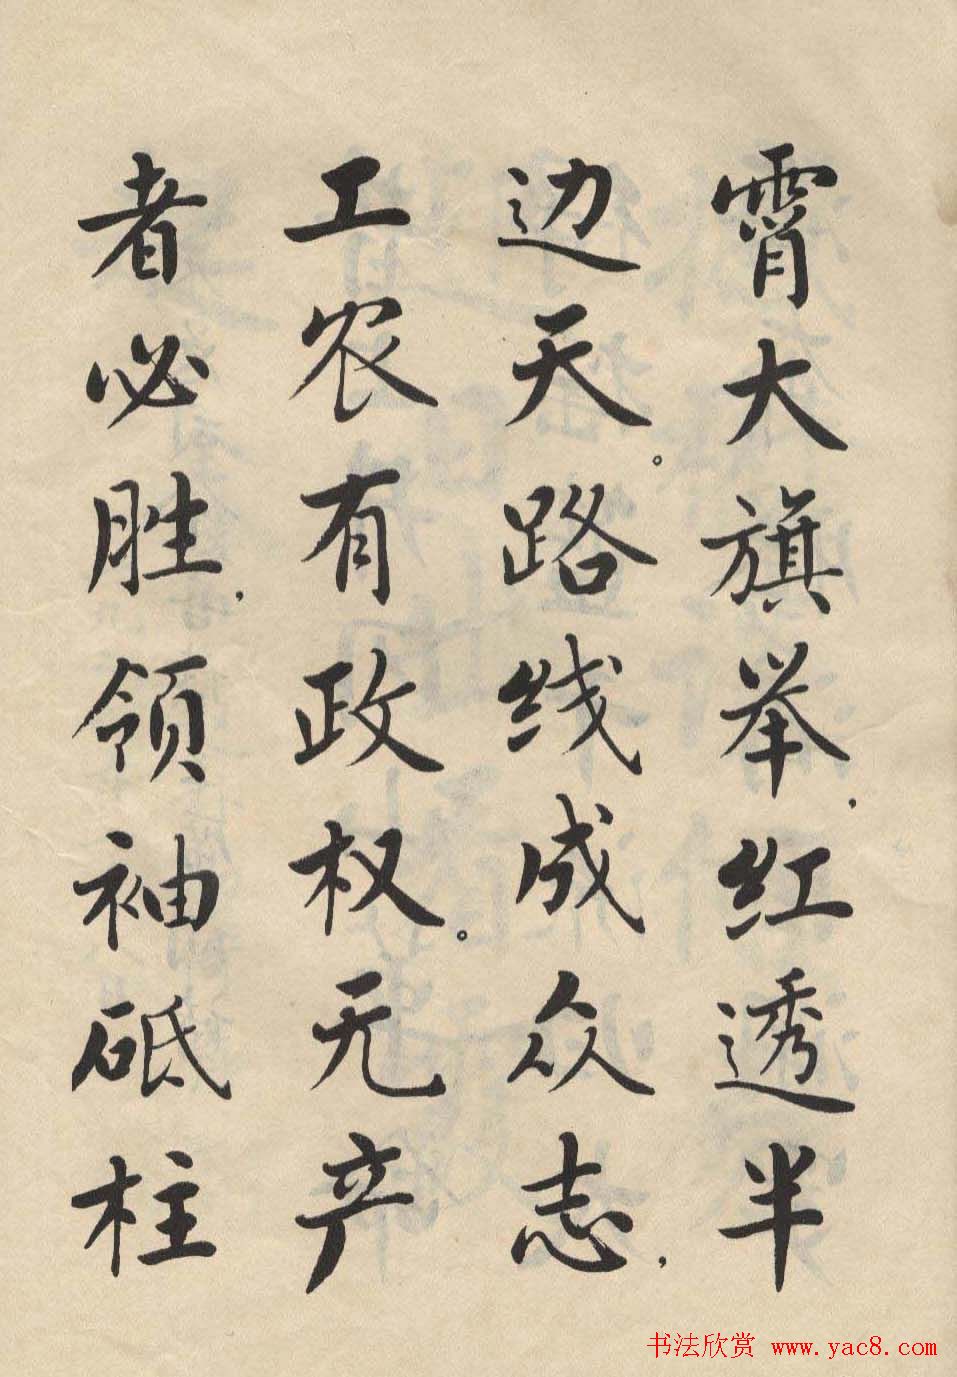 霄大旗举，红透半
边天。路线成众志，
工农有政权。无产
者必胜，领袖砥柱
书法欣赏 www.yac8.com